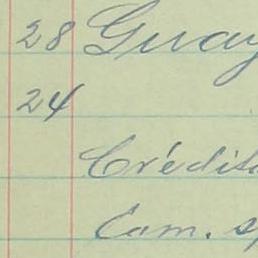 28 Guay
24
Crédit
Com. sp